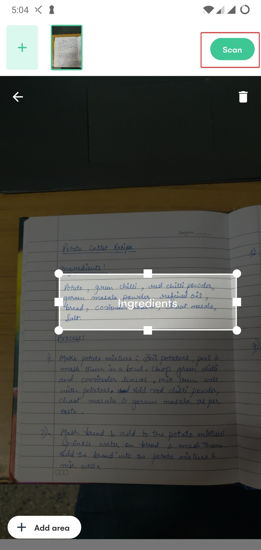 5:04
+
Scan
Potato Cutlet Recipe
Ingredients:
Potato, green chilli, red chilli powder,
garam masala powder, refined oil,
bread, masala,
Salt.
Ingredients
Process:
Make potato mixture: potatoes,
mash them in a bowl. Chop green chilli
and coriander leaves, mix them well
with potatoes. Add red chilli powder,
chaat masala & garam masala as per
taste.
Mash bread & add to the potato mixture
water on bread & mash them
Add the bread into the potato mixture &
mix well.
+ Add area